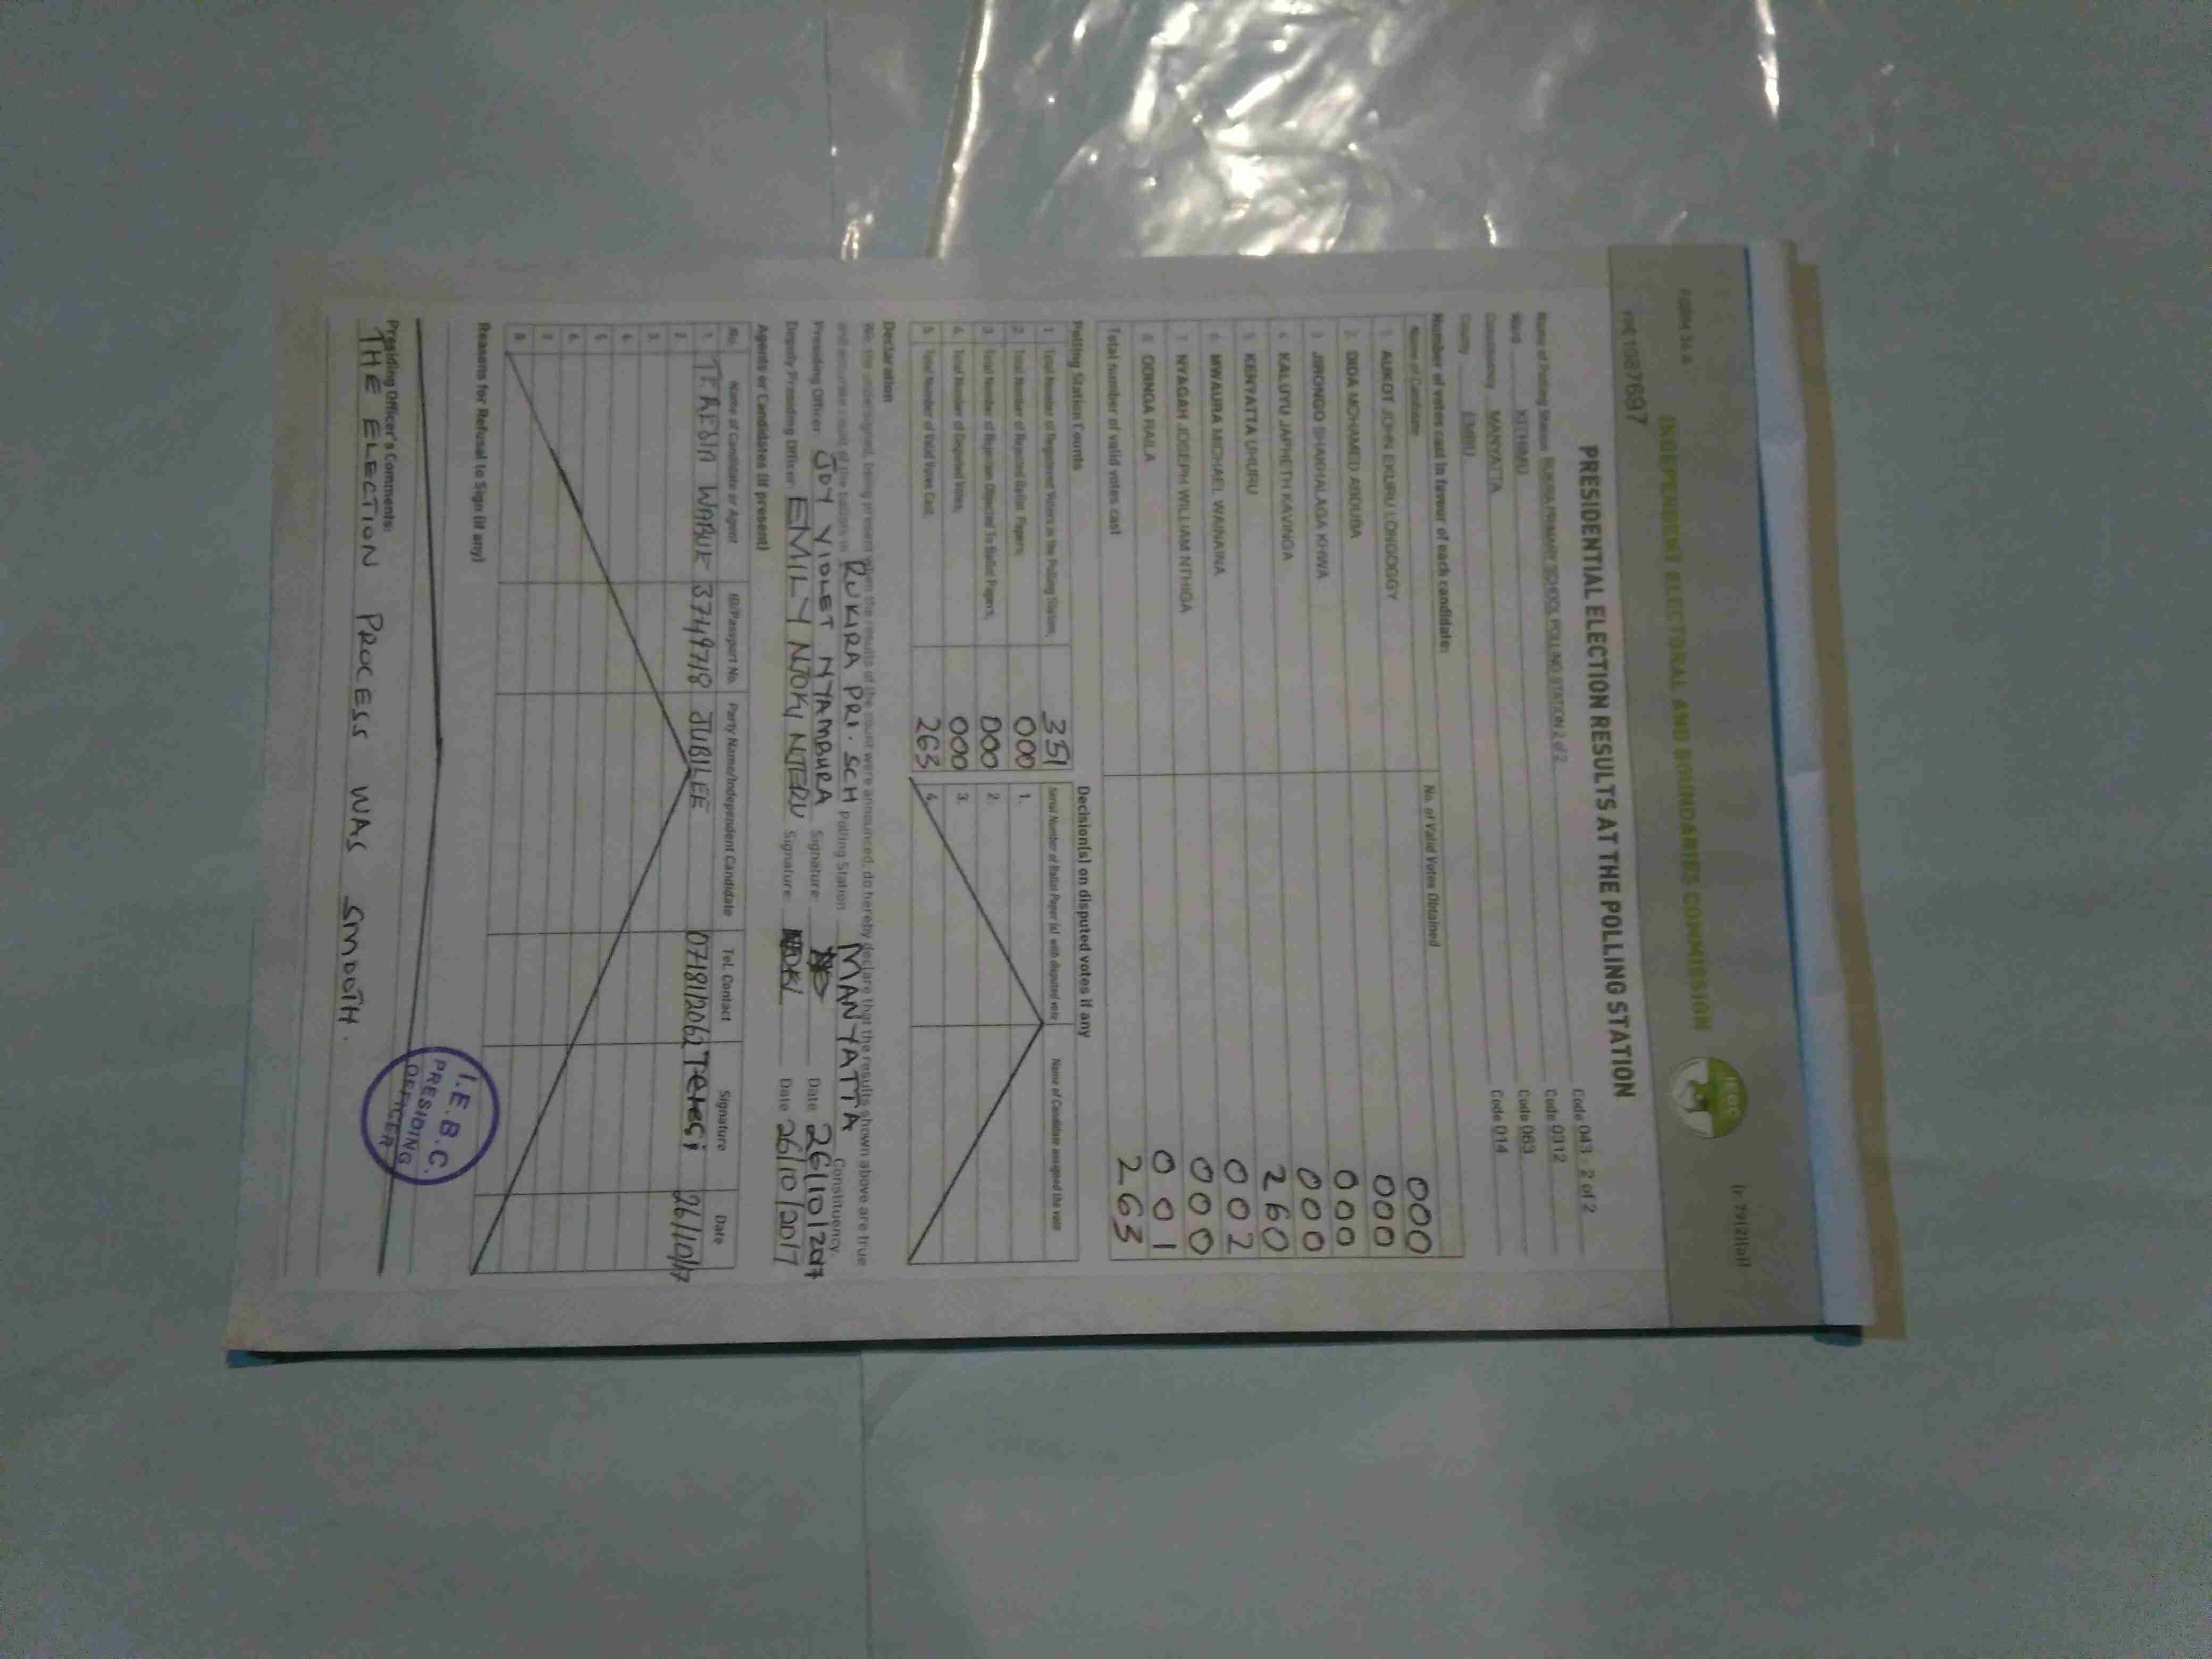 FORM 34 A
(r 79(2)(a))
INDEPENDENT ELECTORAL AND BOUNDARIES COMMISSION
IEBC
PRESIDENTIAL ELECTION RESULTS AT THE POLLING STATION
Name of Polling Station RUKIRA PRIMARY SCHOOL POLLING STATION 2 of 2 Code 043 - 2 of 2
Ward KITHIMU Code 0312
Constituency MANYATTA Code 063
County EMBU Code 014
Number of votes cast in favour of each candidate:
Name of Candidate No. of Valid Votes Obtained
1. AUKOT JOHN EKURU LONGOGGY 000
2. DIDA MOHAMED ABDUBA 000
3. JIRONGO SHAKHALAGA KHWA 000
4. KALUYU JAPHETH KAVINGA 000
5. KENYATTA UHURU 260
6. MWAURA MICHAEL WAINAINA 002
7. NYAGAH JOSEPH WILLIAM NTHIGA 000
8. ODINGA RAILA 001
Total number of valid votes cast 263
Polling Station Counts Decision(s) on disputed votes if any
1. Total Number of Registered Voters in the Polling Station; 351 Serial Number of Ballot Paper (s) with disputed vote Name of Candidate assigned the vote
2. Total Number of Rejected Ballot Papers; 000 1.
3. Total Number of Rejection Objected To Ballot Papers; 000 2.
4. Total Number of Disputed Votes; 000 3.
5. Total Number of Valid Votes Cast; 263 4.
Declaration
We, the undersigned, being present when the results of the count were announced, do hereby declare that the results shown above are true
and accurate count of the ballots in RUKIRA PRI. SCH Polling Station MANYATTA Constituency
Presiding Officer: JOY VIOLET NYAMBURA Signature Date 26/10/2017
Deputy Presiding Officer EMILY NJOKI NJERU Signature Date 26/10/2017
Agents or Candidates (if present)
No. Name of Candidate or Agent ID/Passport No. Party Name/Independent Candidate Tel. Contact Signature Date
1. 37497718 JUBILEE 0718112062 Teresi 26/10/17
2.
3.
4.
5.
6.
7.
8.
Reasons for Refusal to Sign (if any)
I.E.B.C. PRESIDING OFFICER
Presiding Officer's Comments:
THE ELECTION PROCESS WAS SMOOTH.